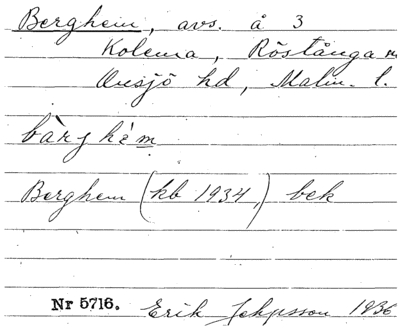 Berghem, avs. å 3
Kolema, Röstånga sn
Onsjö hd, Malm. l.
bàrj hèm
Berghem (kb 1934,) bek
Nr 5716. Erik Jeppsson 1936